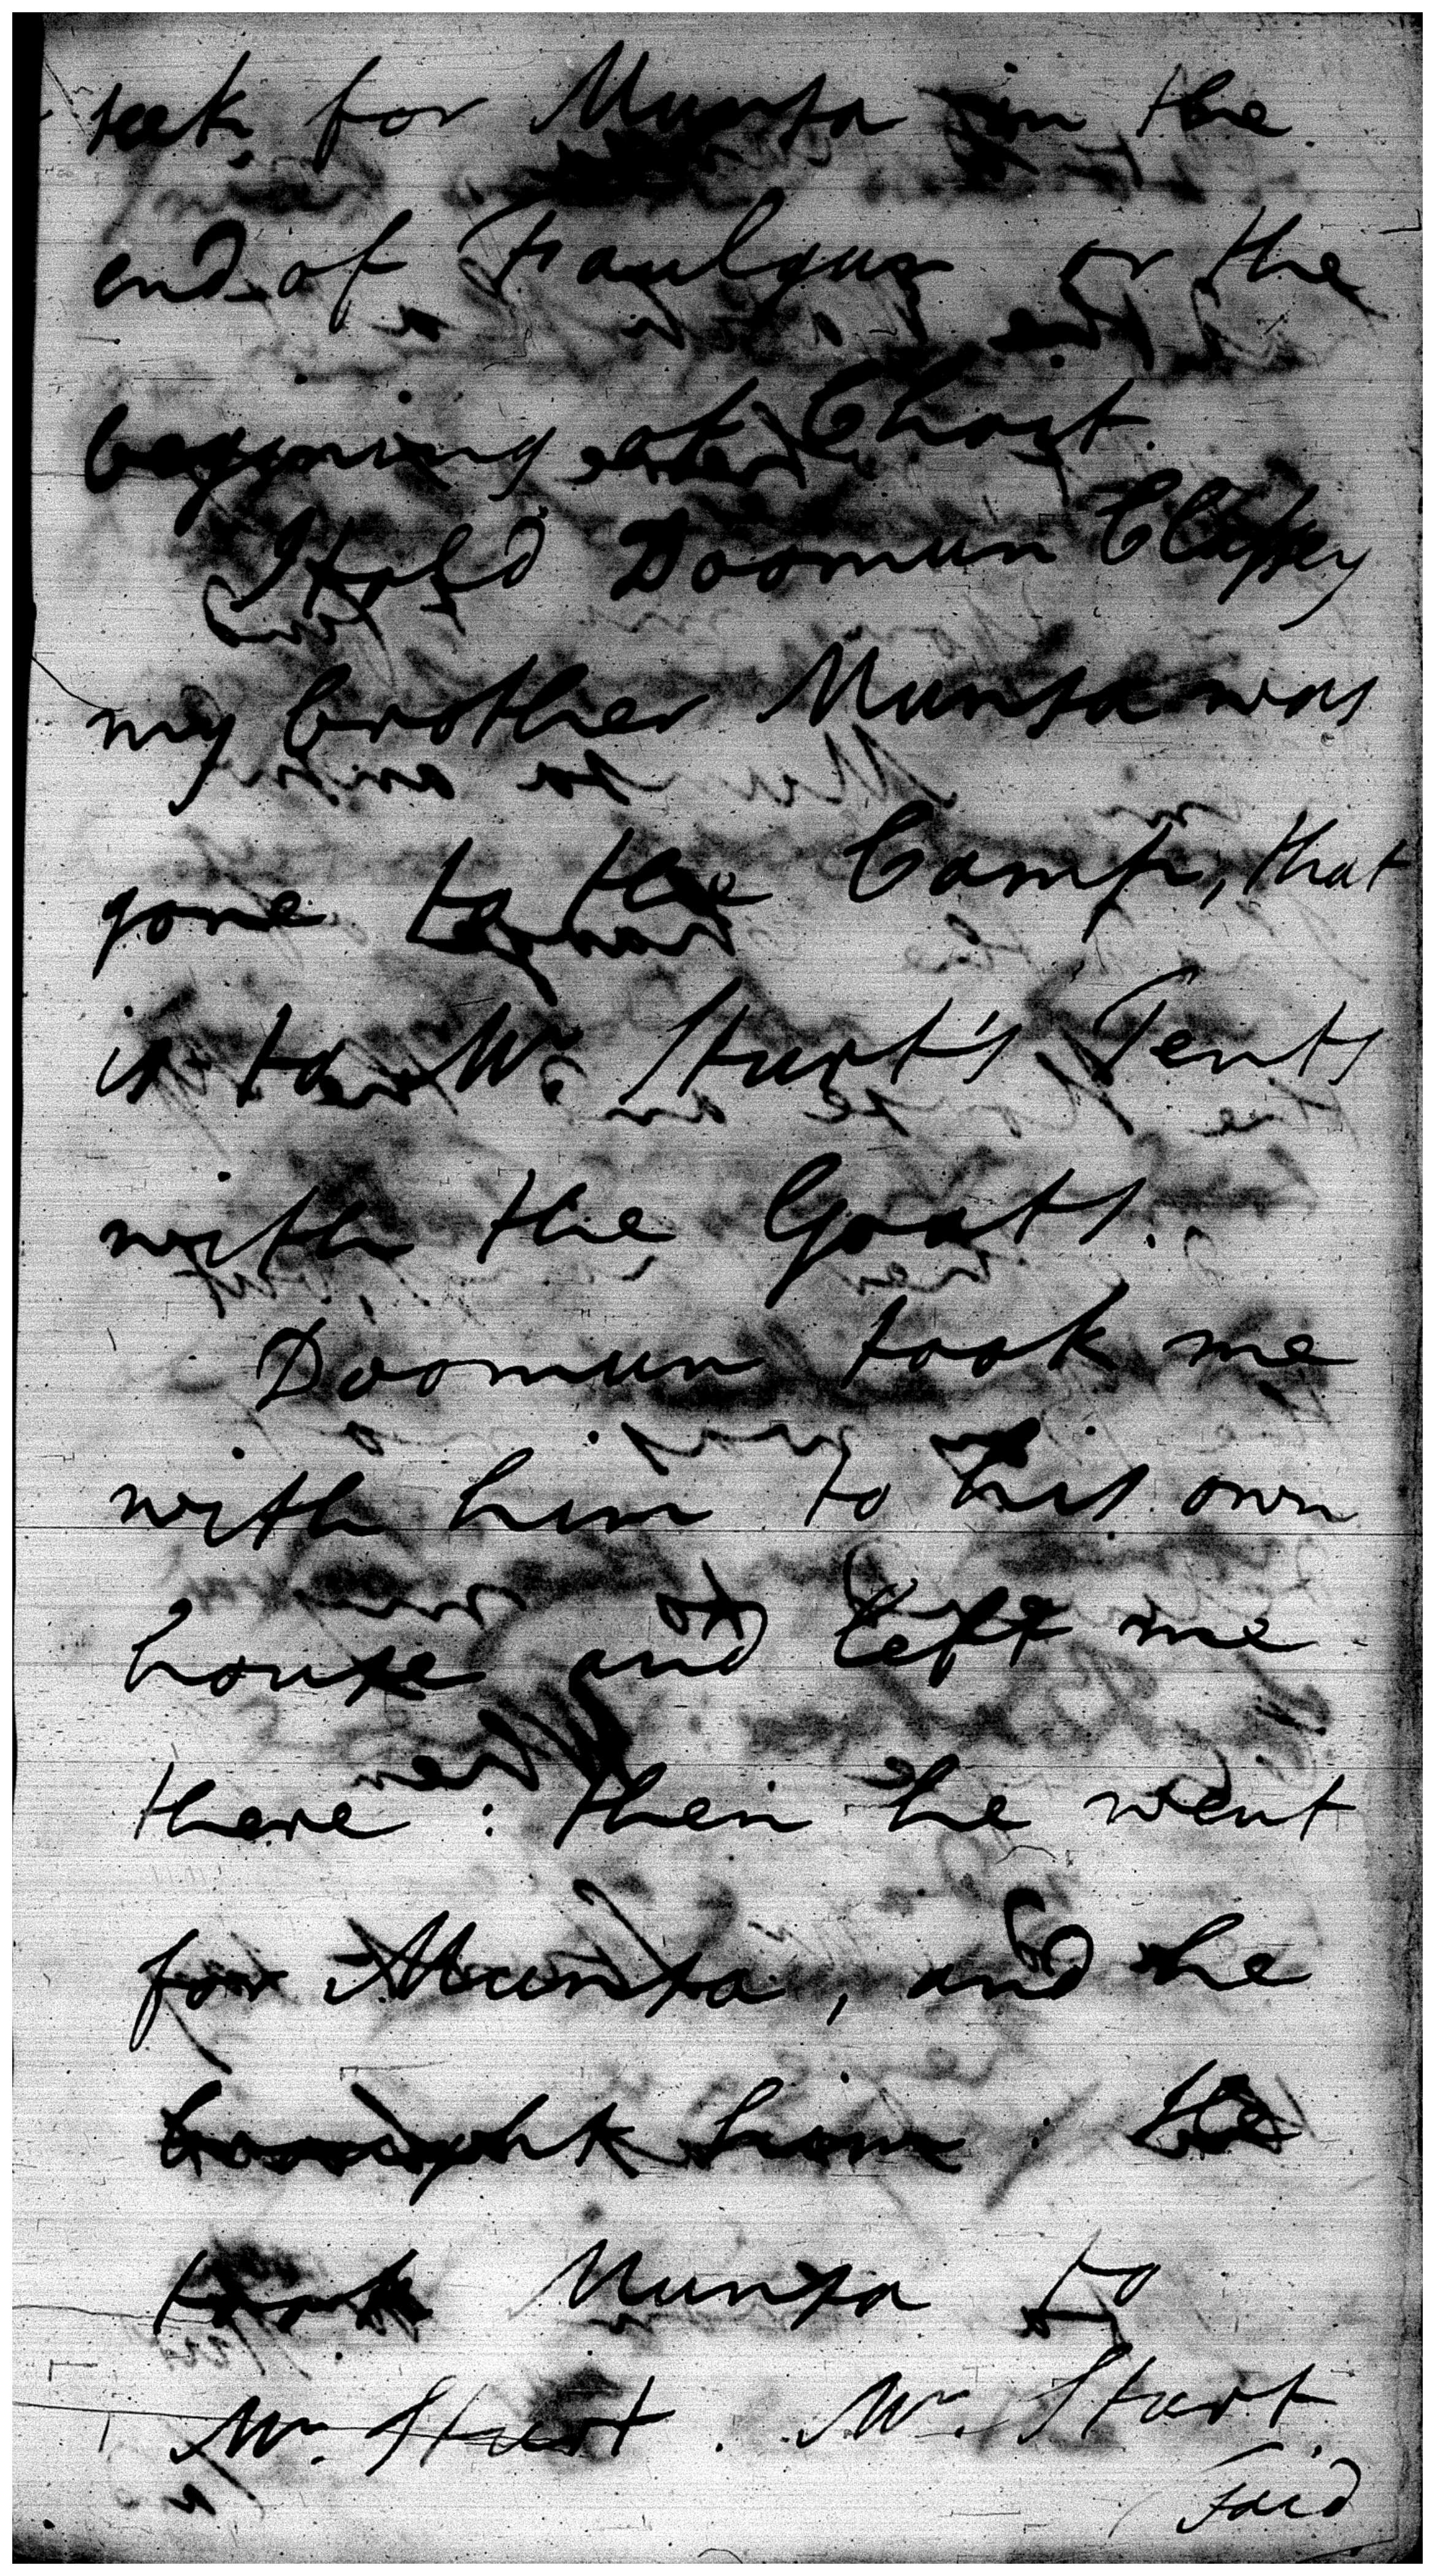 seek for Munsa in the
end of Faulgun or the
beginning of Choit.
I told Doomun
my brother Munsa was
gone to the Camp, that
is to Mr Sturt's Tents
with the Goats.
Doomun took me
with him to his own
house and left me
there : then he went
for Munsa, and he
brought him : he
took Munsa to
Mr. Sturt . Mr. Sturt
said